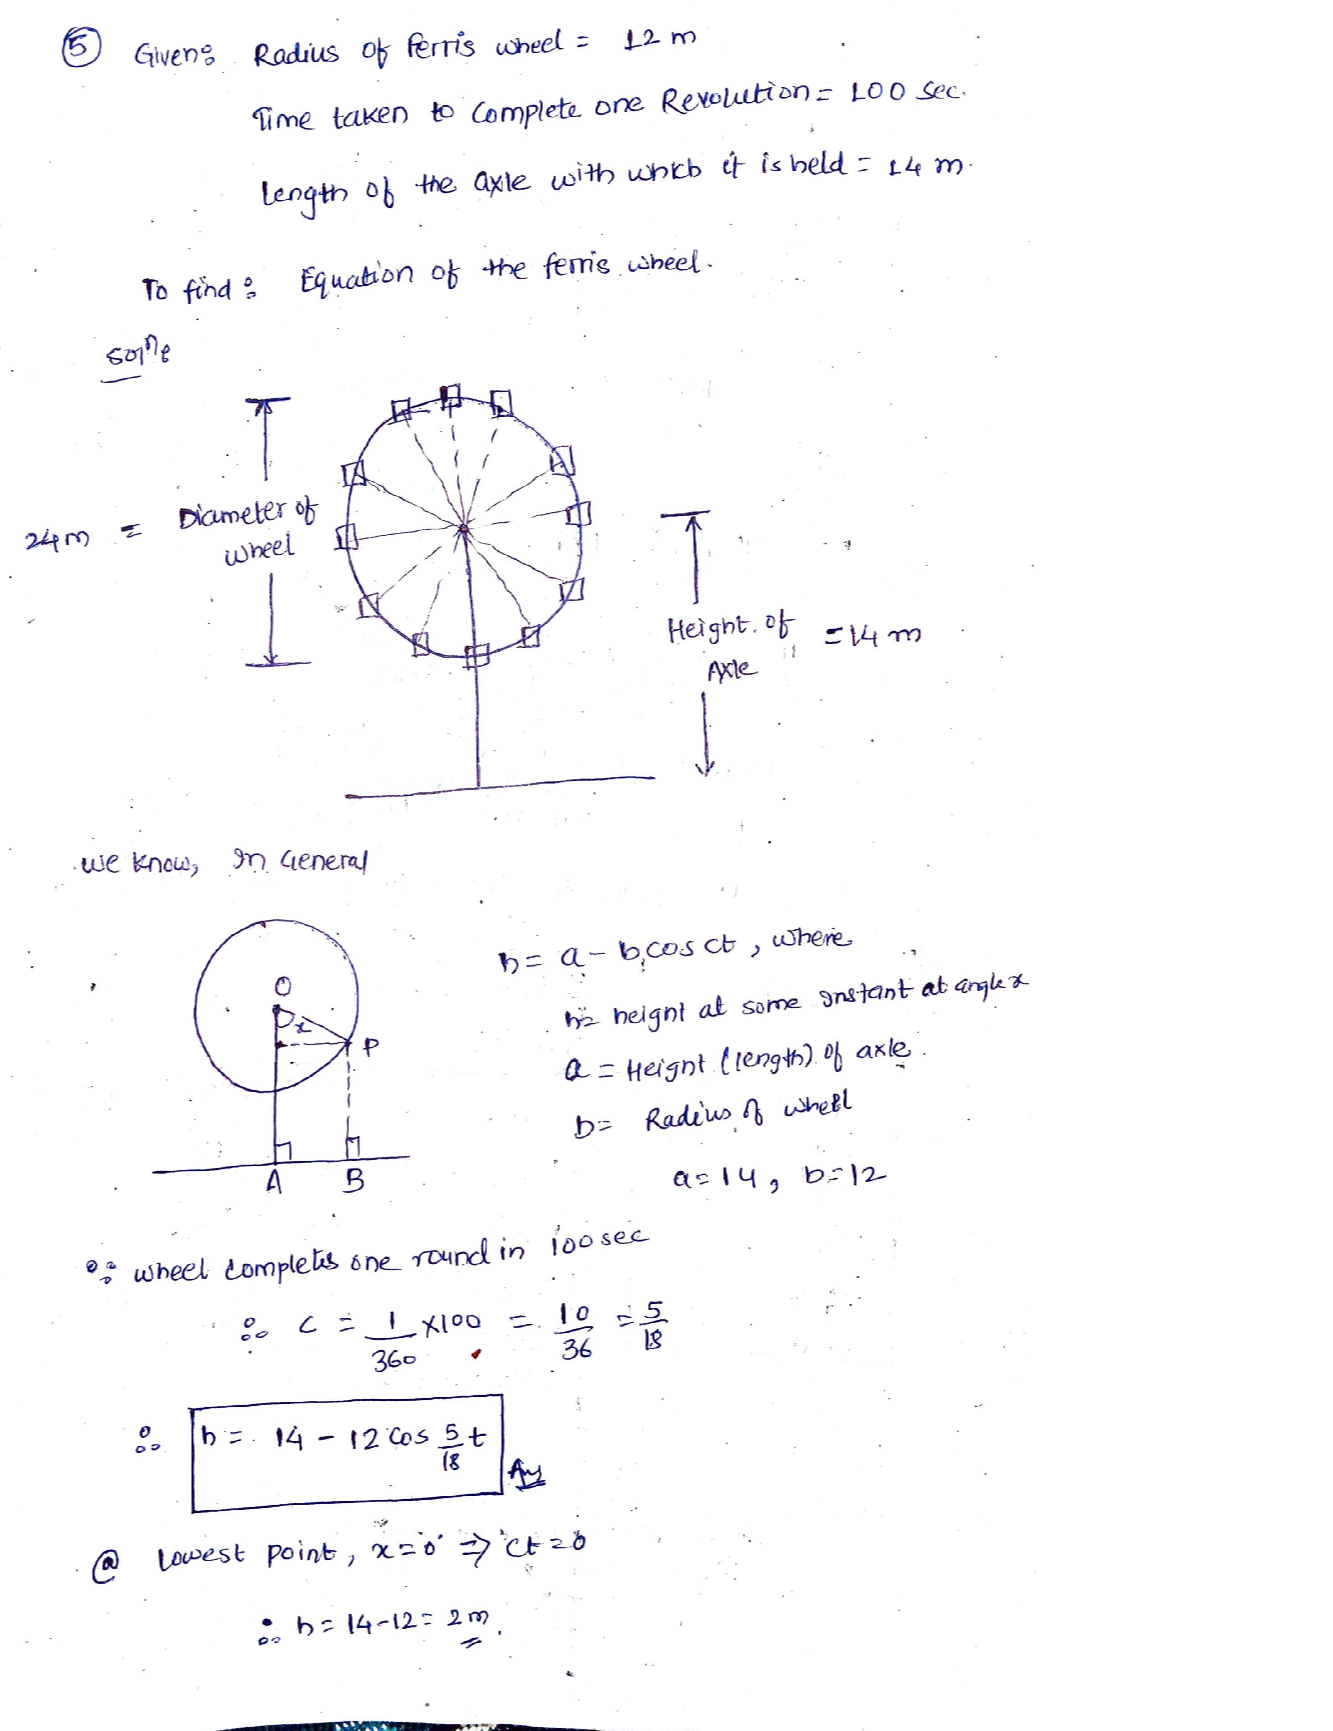 5 Given: Radius of ferris wheel = 12 m
Time taken to complete one Revolution = 100 sec.
length of the axle with which it is held = 14 m.
To find: Equation of the ferris wheel.
Solⁿ:
24m = Diameter of wheel
Height of Axle = 14 m
we know, In General
h = a - b cos ct, where
h = height at some instant at angle x
a = Height (length) of axle.
b = Radius of wheel
a = 14, b = 12
O
x
P
A B
∵ wheel completes one round in 100 sec
∴ c = 1/360 × 100 = 10/36 = 5/18
∴ h = 14 - 12 cos 5/18 t Ans
@ lowest point, x = 0° ⇒ ct = 0
∴ h = 14 - 12 = 2 m.